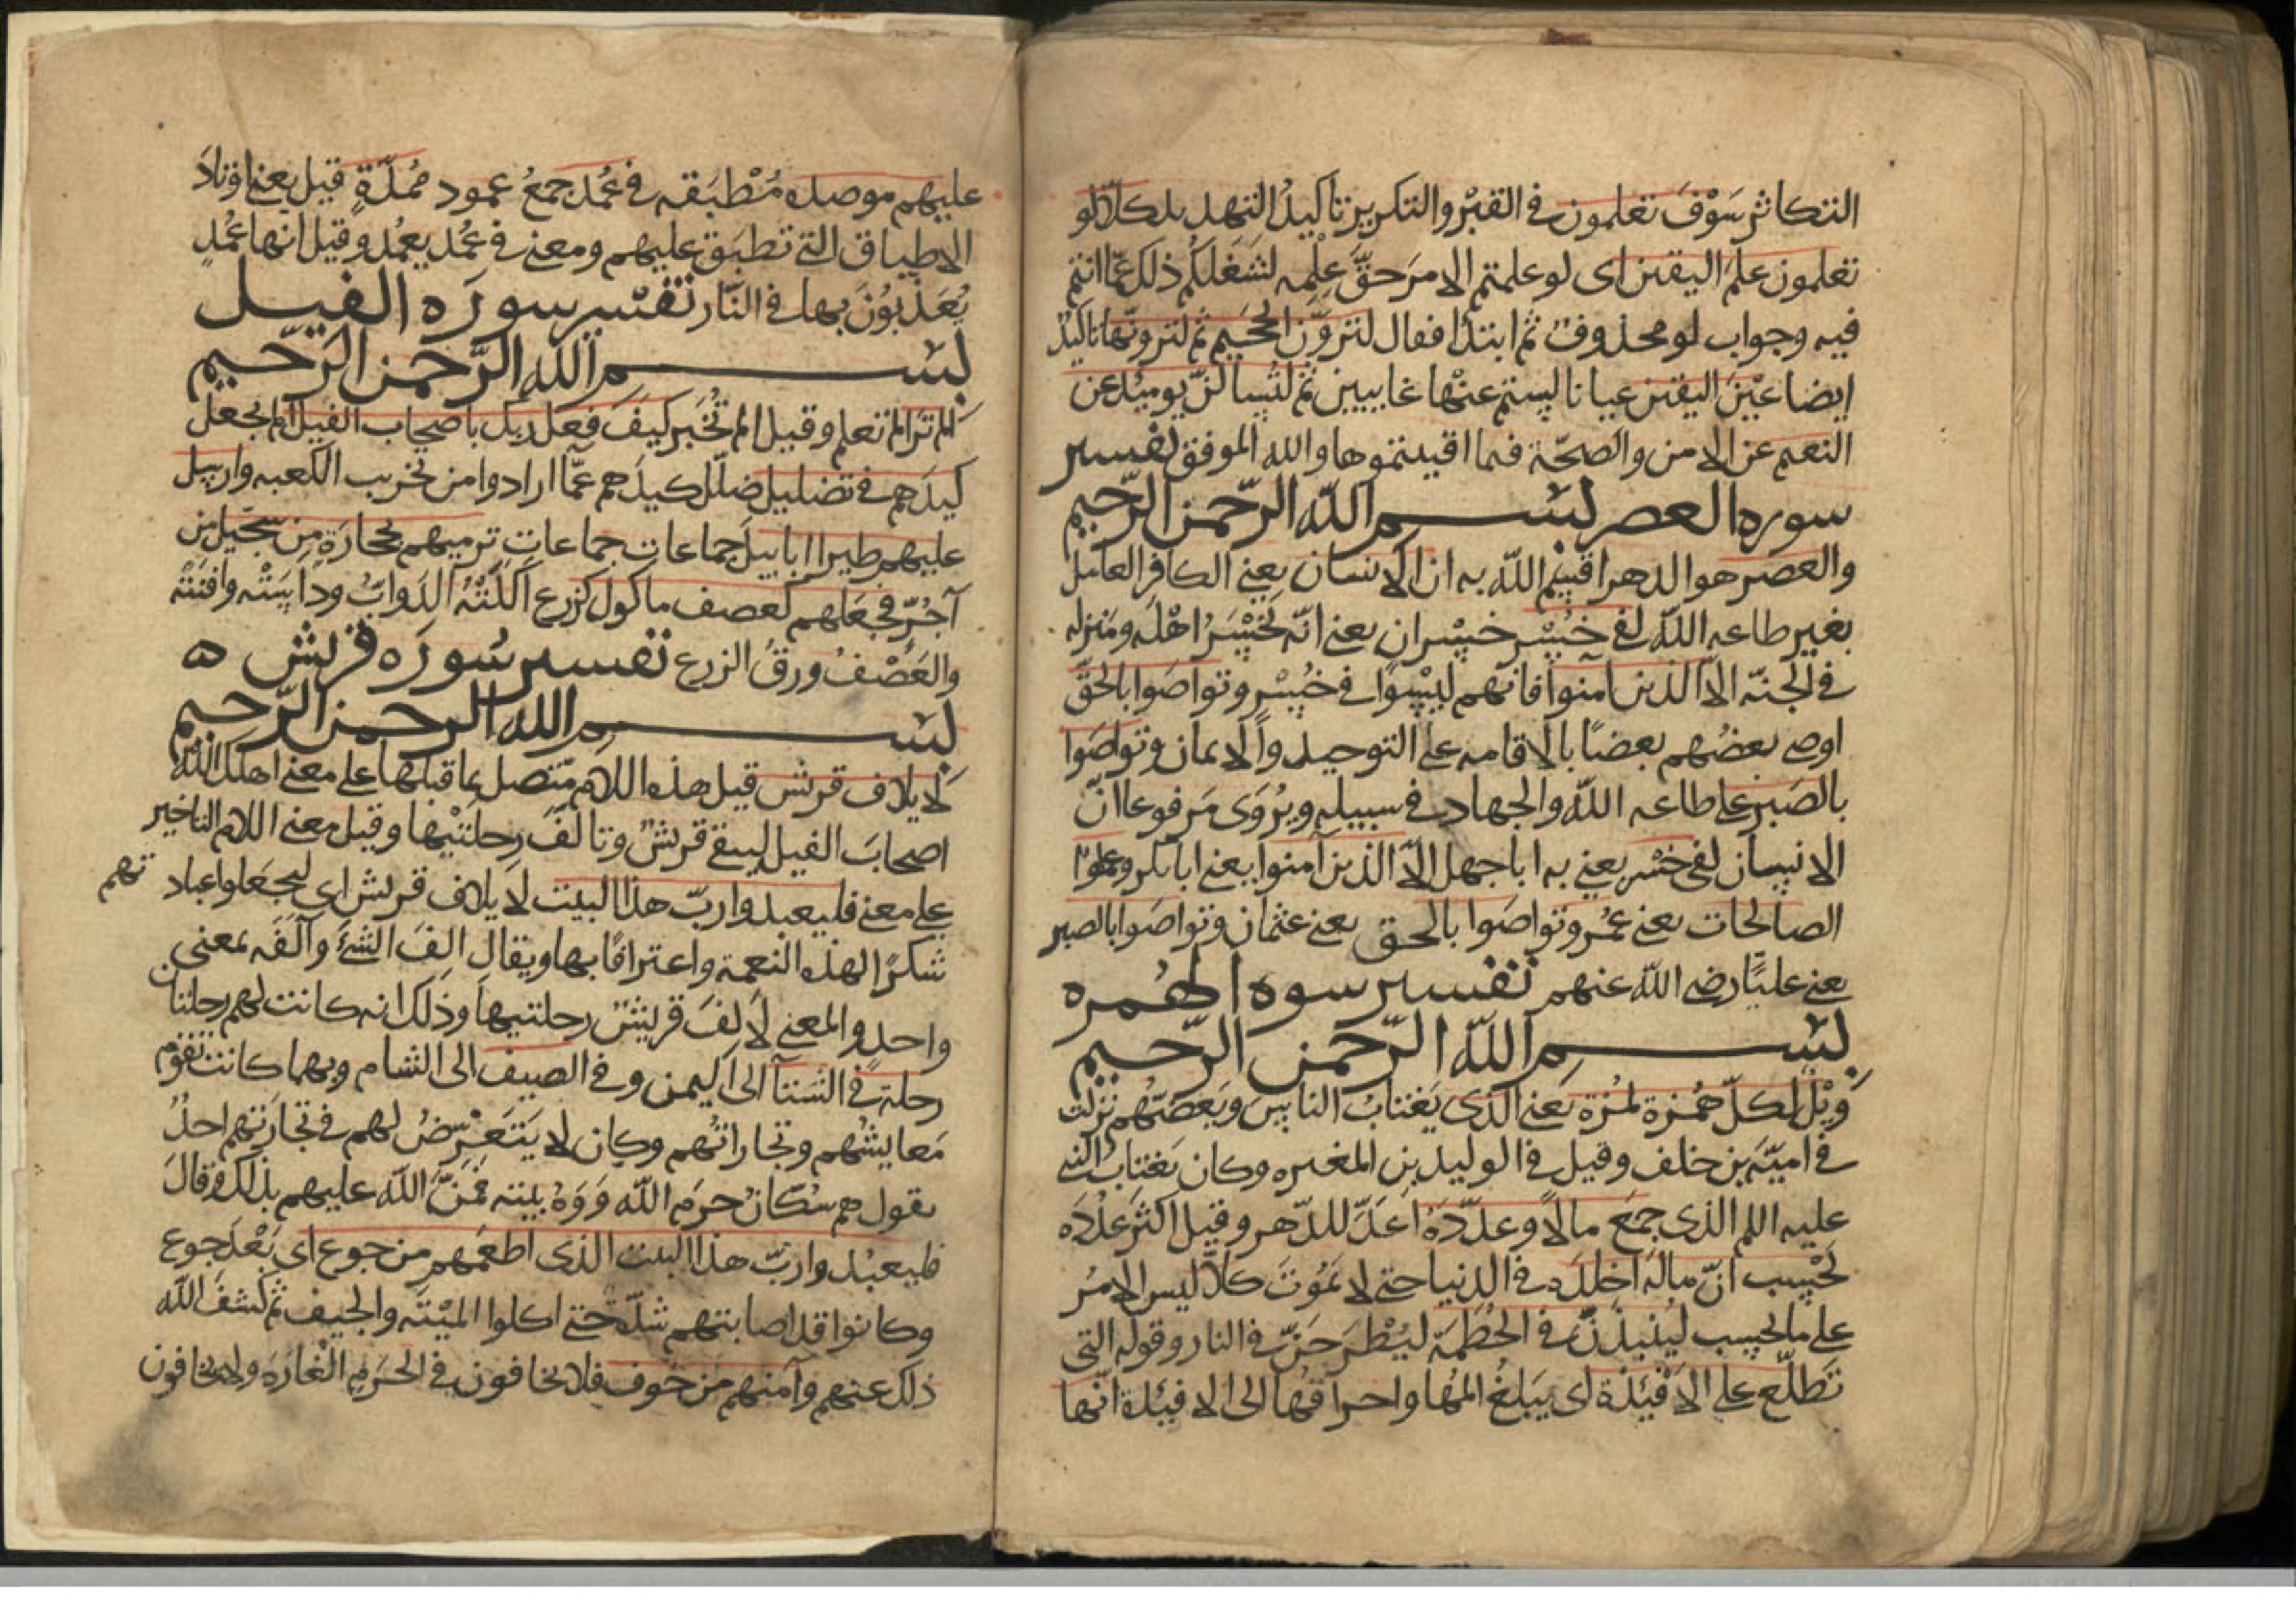 التكاثر سَوْفَ تعلمون في القبْر والتكرير تاكيدُ التهدىد كلّا لو
تعلمون علْمَ اليقين اى لو علمتم الامرَ حقَّ عِلْمِه لشَغَلَكُم ذلك عمّا انتم
فيه وجواب لو محذوف ثم ابتدا فقال لتروَنَّ الجحيم ثم لترونّها تاكيدٌ
ايضا عَيْنَ اليقين عيانا لستم عنْها غايبين ثم لتُسالنّ يوميذ عن
النعيم عن الامن والصحّة فيما افنيتموها والله الموفق تفسير
سوره العصر بسم الله الرّحمن الرّحيم
والعصر هو الدهر اقسم الله به ان الانسان يعني الكافر العامل
بغير طاعه الله لفي خُسْر خسْران يعني انّه يَخْسَرُ اهْلَه ومنزله
في الجنّه الّا الذين آمنوا فانهم ليْسوا في خُسْر وتواصَوا بالحَقّ
اوصى بعضُهم بعضًا بالاقامه على التوحيد والايمان وتواصَوا
بالصَبر على طاعه الله والجهاد في سبيله ويُرْوَى مَرفوعا انّ
الانسان لفى خسْر يعني به ابا جهل الّا الذين آمنوا يعنى ابا بكر وعملوا
الصالحات يعنى عُمر وتواصَوا بالحق يعنى عثمان وتواصَوا بالصبر
يعنى عليّا رضي الله عنهم تفسير سوه الهُمزه
بسم الله الرّحمن الرّحيم
وَيْلٌ لكلّ هُمَزة لمُزة يَعنى الذى يَغْتابُ الناسَ ويَعضّهُم نزلت
في اميّة بن خلف وقيل في الوليد بن المغيره وكان يَغتاب النبى
عليه اللم الذى جمَعَ مالًا وعدّدَهُ اعَدّ للدّهر وقيل اكثرَ عَدَدَه
يَحْسِب انّ مالَه اخلدَه في الدنيا حتى لا يمُوتَ كلّا ليس الامرُ
على ما يحسِب ليُنبذَنّ في الحُطَمَة ليُطْرَحَنّ في النار وقوله التى
تَطّلع على الافْئدة اى يَبلغُ المُها واحراقُها الى الافئدة انّها
عليهم موصده مُطْبَقه في عُمُد جمعُ عمود مُمدّدةٍ قيل يعنى اوتادَ
الاطباق التى تطبَق عليهم ومعنى في عُمُد بعُمُد وقيل انها عُمُد
يُعَذّبوُنَ بها في النّار تفسير سورَه الفيل
بسم الله الرَّحمن الرَّحيم
اَلم تَرَ الم تعلم وقيل الم تُخبَر كيفَ فعل ربك باصحاب الفيل الم يجعل
كيدَهم في تضليل ضلّل كيدَهم عمّا ارادوا من تخريب الكعبه وارسل
عليهم طيرا ابابيلَ جماعات جماعات ترميهم بحجارَةٍ من سجّيل من
آجُرّ فجعَلهم كعصف ماكول كزرع اَكلَتْهُ الدَوابّ وداسَتْه وافنَتْه
والعَصْفُ ورقُ الزرع تفسير سُورَه قريش ه
بسم الله الرحمن الرّحيم
لايلاف قريش قيل هذه اللام متّصل بما قبلها على معنى اهلك اللهُ
اصحابَ الفيل ليبقى قريشٌ وتالفَ رحلتَيْها وقيل معنى اللام التاخير
على معنى فليعبدوا ربّ هذا البيت لايلاف قريش اى ليجعَلوا عباد تهم
شكرًا لهذه النعمة واعترافًا بها ويقال الفَ الشئَ وآلفَه بمعنى
واحدٍ والمعنى لالفَ قريشٌ رحلتيها وذلك انه كانت لهم رحلتان
رحلة في الشتآ الى اليمن وفي الصيف الى الشام وبهما كانت تقوُم
مَعايشُهم وتجاراتُهم وكان لا يَتَعَرّضُ لهم في تجارَتهم احدٌ
يقول هم سُكّانُ حرَم الله وَوَلاهُ بيته فمَنّ الله عليهم بذلك وقالَ
فليعبُدوا ربّ هذا البيت الذى اطعَمهم من جوع اى بَعْدَ جوع
وكانوا قد اصابتهم شدّة حتى اكلوا الميْتَه والجيف ثم كشفَ الله
ذلك عنهم وآمنهم من خوف فلا يخافون في الحرَم الغارَه ولا يخافون